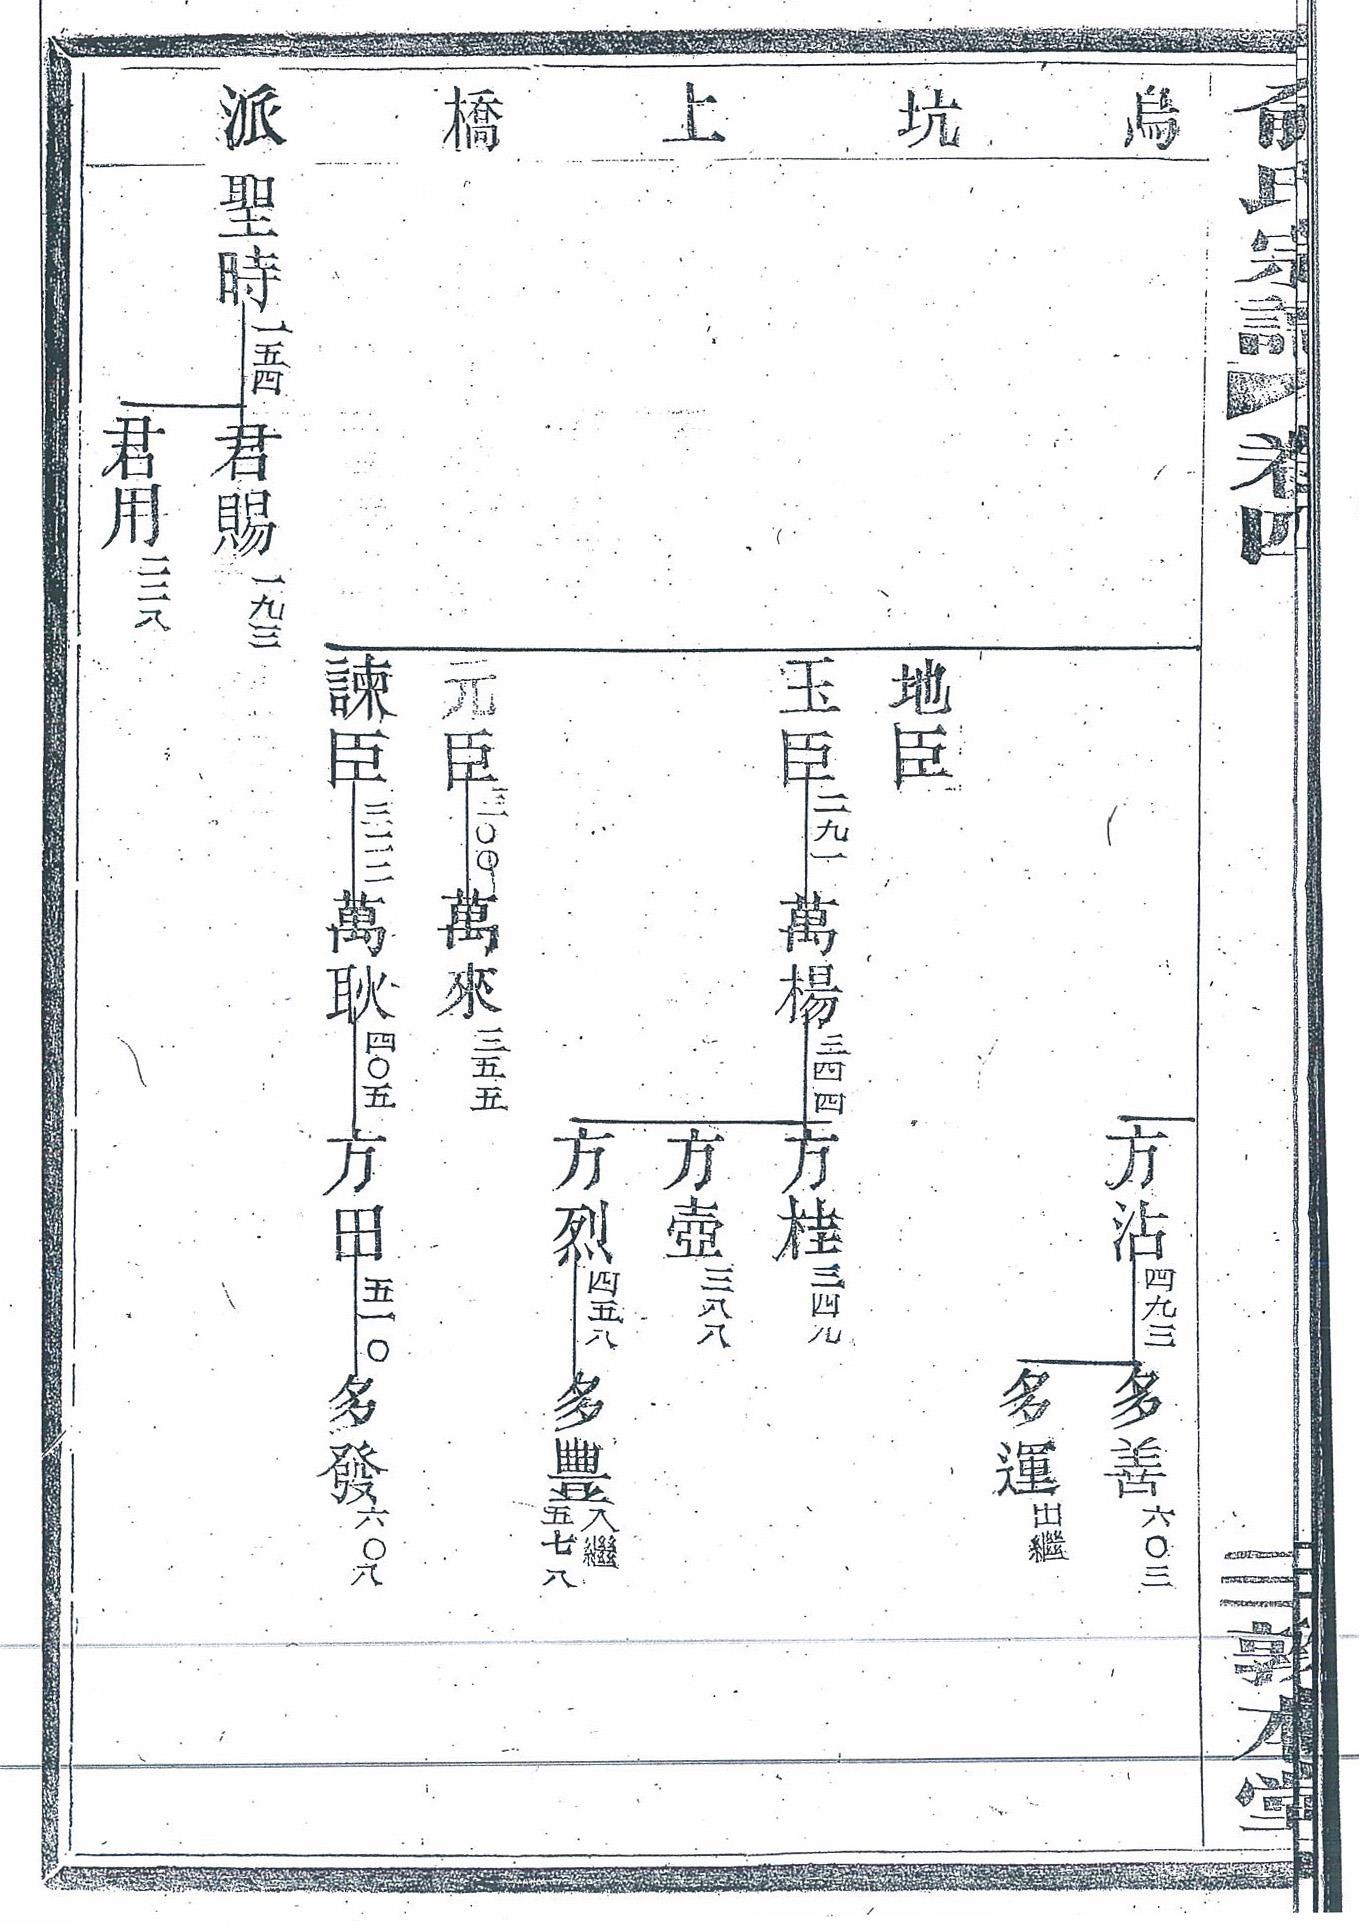 俞氏宗譜 卷四
敦本堂
烏坑上橋派
方沾 四九三
多善 六〇三
多運 出繼
地臣
玉臣 二九一
萬楊 三四四
方桂 三四九
方壺 三八八
方烈 四五八
多豐 入繼 五七八
元臣 三〇〇
萬來 三五五
諫臣 三二二
萬耿 四〇五
方田 五一〇
多發 六〇八
聖時 一五四
君賜 一九三
君用 二二八